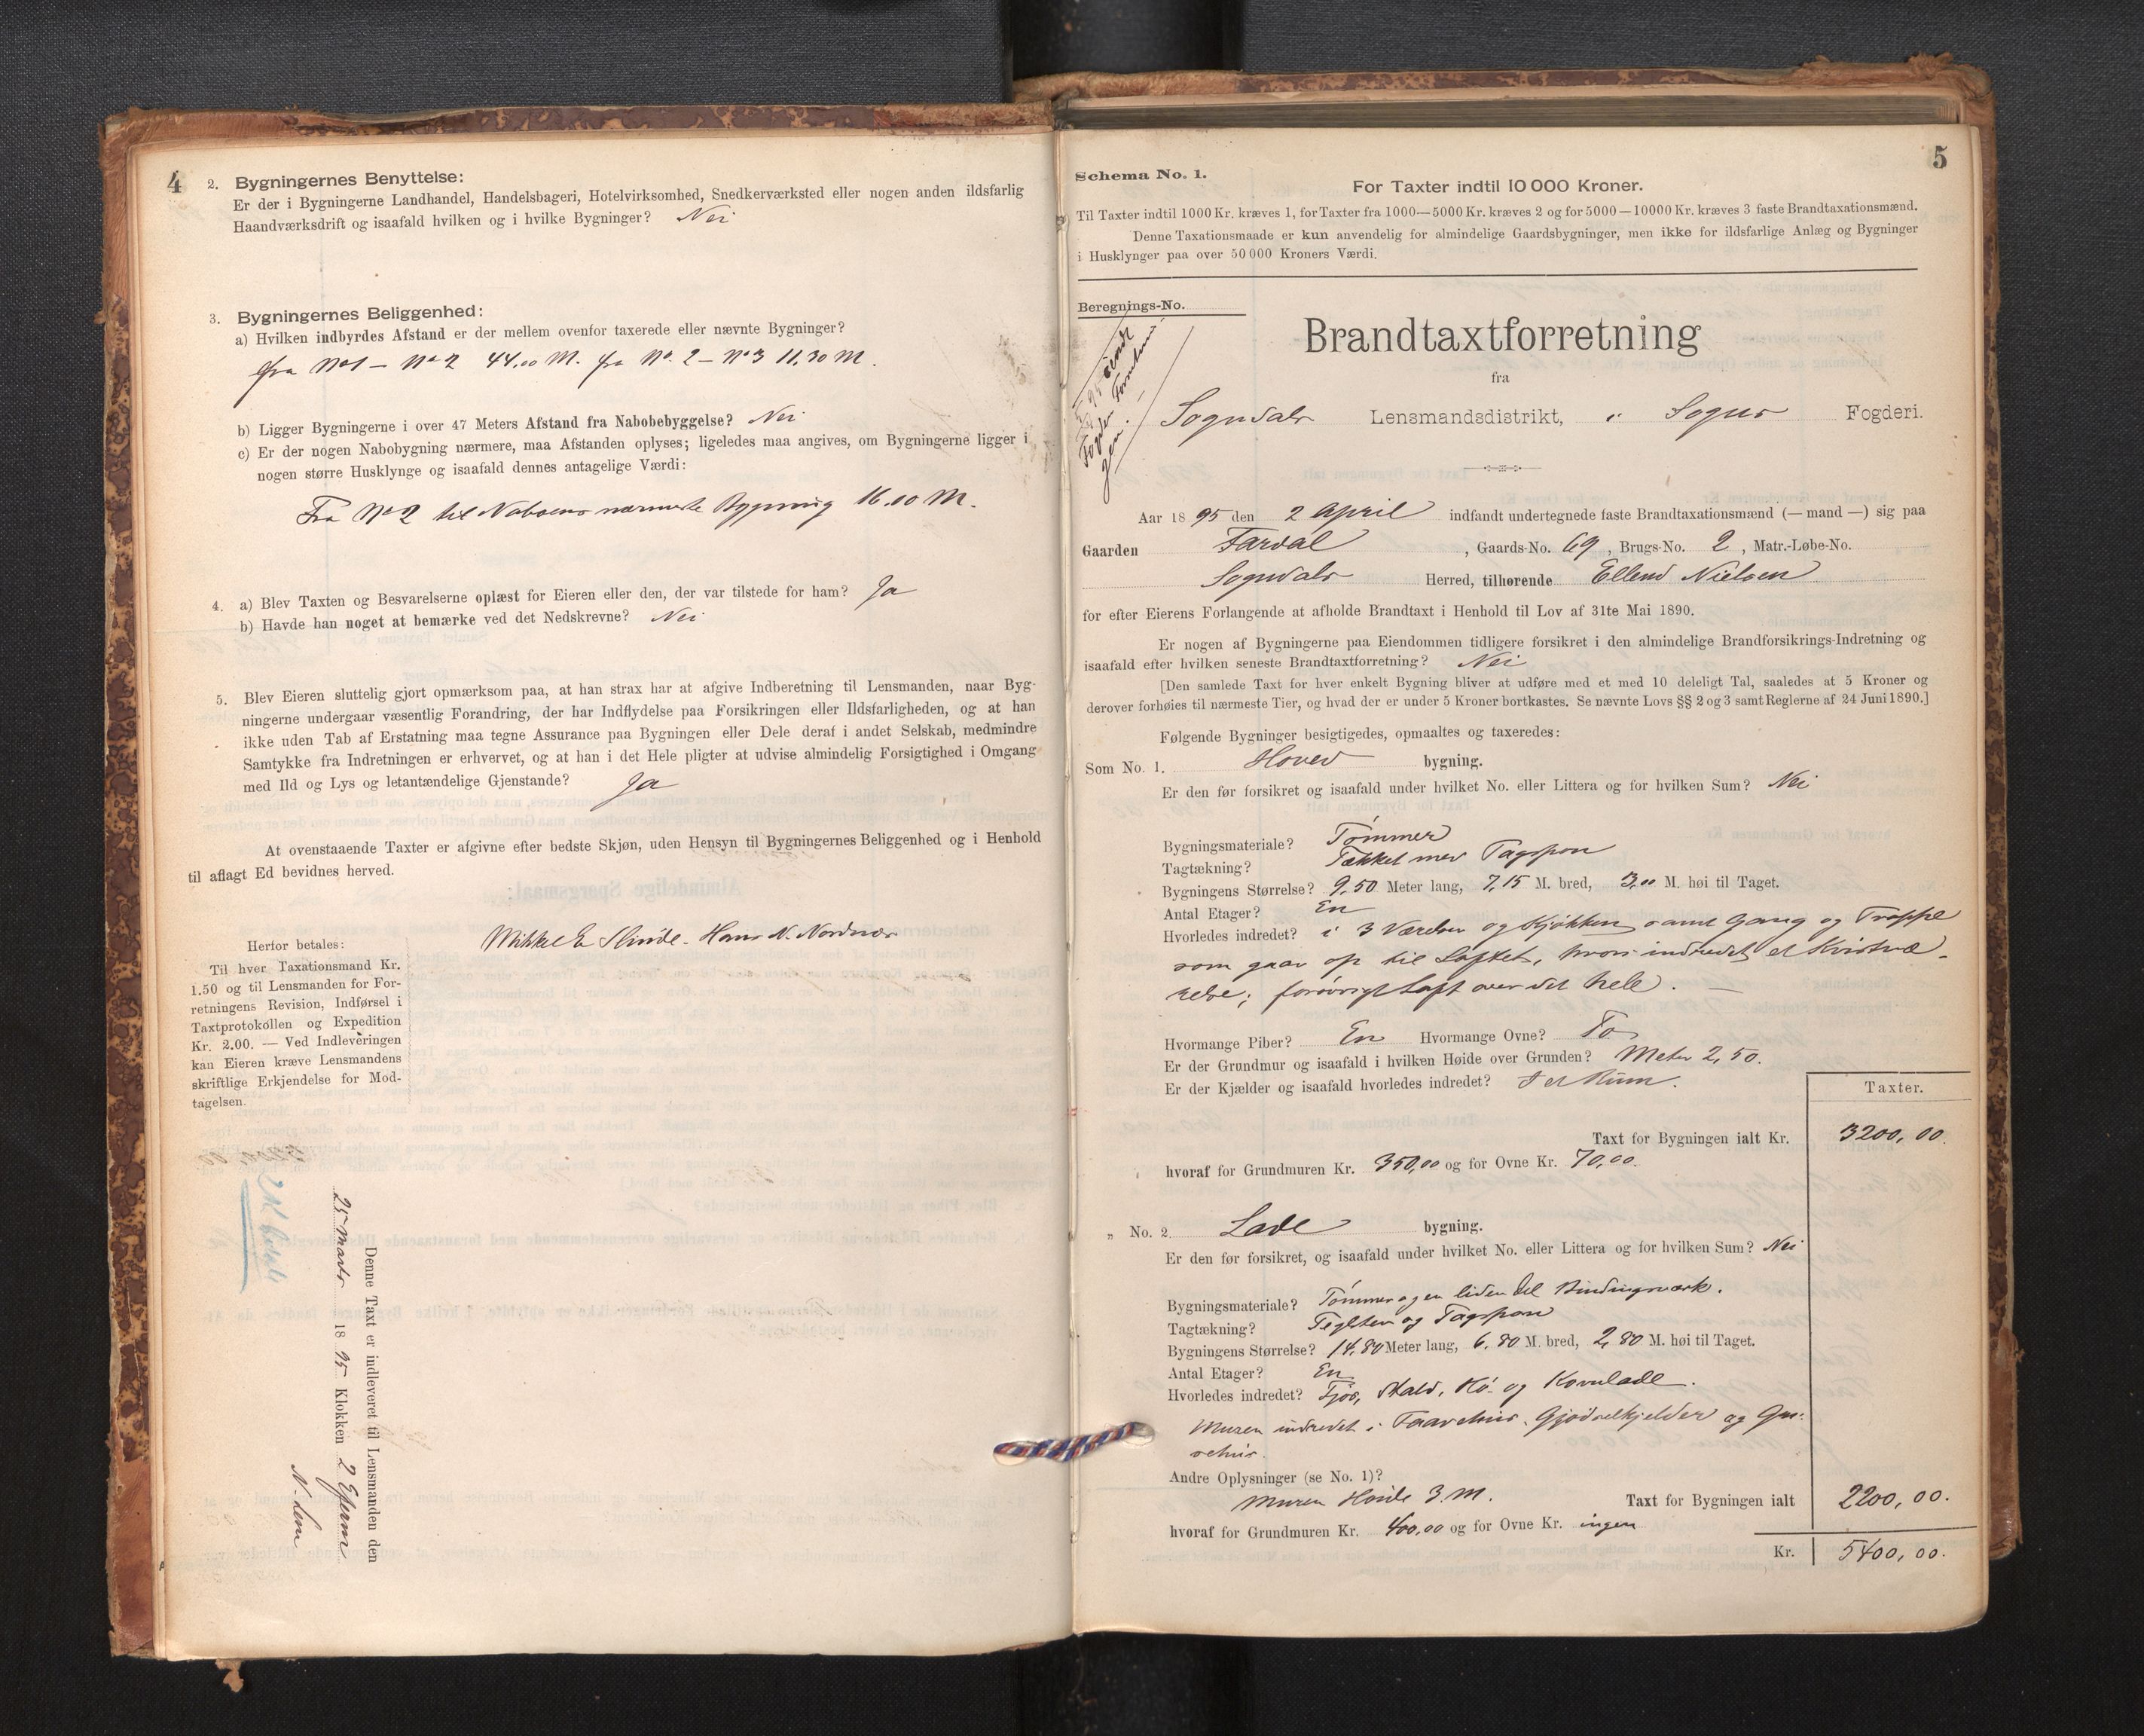 4
2. Bygningernes Benyttelse:
Er der i Bygningerne Landhandel, Handelsbageri, Hotelvirksomhed, Snedkerværksted eller nogen anden ildsfarlig
Haandværksdrift og isaafald hvilken og i hvilke Bygninger? Nei
3. Bygningernes Beliggenhed:
a) Hvilken indbyrdes Afstand er der mellem ovenfor taxerede eller nævnte Bygninger?
fra No 1 — No 2 44,00 M. fra No. 2 — No 3 11,20 M.
b) Ligger Bygningerne i over 47 Meters Afstand fra Nabobebyggelse? Nei
c) Er der nogen Nabobygning nærmere, maa Afstanden oplyses; ligeledes maa angives, om Bygningerne ligger i
nogen større Husklynge og isaafald dennes antagelige Værdi:
Fra No 2 til Naboens nærmeste Bygning 16.00 M.
4. a) Blev Taxten og Besvarelserne oplæst for Eieren eller den, der var tilstede for ham? Ja
b) Havde han noget at bemærke ved det Nedskrevne? Nei
5. Blev Eieren sluttelig gjort opmærksom paa, at han strax har at afgive Indberetning til Lensmanden, naar Byg-
ningerne undergaar væsentlig Forandring, der har Indflydelse paa Forsikringen eller Ildsfarligheden, og at han
ikke uden Tab af Erstatning maa tegne Assurance paa Bygningen eller Dele deraf i andet Selskab, medmindre
Samtykke fra Indretningen er erhvervet, og at han i det Hele pligter at udvise almindelig Forsigtighed i Omgang
med Ild og Lys og letantændelige Gjenstande? Ja
At ovenstaaende Taxter er afgivne efter bedste Skjøn, uden Hensyn til Bygningernes Beliggenhed og i Henhold
til aflagt Ed bevidnes herved.
Mikkel E Slinde. Hans N. Nordnæs
Herfor betales:
Til hver Taxationsmand Kr.
1.50 og til Lensmanden for For-
retningens Revision, Indførsel i
Taxtprotokollen og Expedition
Kr. 2.00. — Ved Indleveringen
kan Eieren kræve Lensmandens
skriftlige Erkjendelse for Mod-
tagelsen.
Denne Taxt er indleveret til Lensmanden den
25 Marts 1895 Klokken 2 Efterm
5
Schema No. 1.
For Taxter indtil 10 000 Kroner.
Til Taxter indtil 1000 Kr. kræves 1, for Taxter fra 1000—5000 Kr. kræves 2 og for 5000—10000 Kr. kræves 3 faste Brandtaxationsmænd.
Denne Taxationsmaade er kun anvendelig for almindelige Gaardsbygninger, men ikke for ildsfarlige Anlæg og Bygninger
i Husklynger paa over 50 000 Kroners Værdi.
Beregnings-No.
Brandtaxtforretning
fra
Sogndals Lensmandsdistrikt, i Sogns Fogderi.
Aar 1895 den 2 April indfandt undertegnede faste Brandtaxationsmænd (— mand —) sig paa
Gaarden Fardal, Gaards-No. 69, Brugs-No. 2, Matr.-Løbe-No.
Sogndals Herred, tilhørende Ellend Nielsen
for efter Eierens Forlangende at afholde Brandtaxt i Henhold til Lov af 31te Mai 1890.
Er nogen af Bygningerne paa Eiendommen tidligere forsikret i den almindelige Brandforsikrings-Indretning og
isaafald efter hvilken seneste Brandtaxtforretning? Nei
[Den samlede Taxt for hver enkelt Bygning bliver at udføre med et med 10 deleligt Tal, saaledes at 5 Kroner og
derover forhøies til nærmeste Tier, og hvad der er under 5 Kroner bortkastes. Se nævnte Lovs §§ 2 og 3 samt Reglerne af 24 Juni 1890.]
Følgende Bygninger besigtigedes, opmaaltes og taxeredes:
Som No. 1. Hoved bygning.
Er den før forsikret og isaafald under hvilket No. eller Littera og for hvilken Sum? Nei
Bygningsmateriale? Tømmer
Tagtækning? Tækket med Tagspon
Bygningens Størrelse? 9,50 Meter lang, 7,15 M. bred, 3,00 M. høi til Taget.
Antal Etager? En
Hvorledes indredet? i 3 Værelser og Kjøkken samt Gang og Trappe
som gaar op til Loftet, hvor indredet et Kvistvæ-
relse; forøvrigt Loft over det hele.
Hvormange Piber? En Hvormange Ovne? To
Er der Grundmur og isaafald i hvilken Høide over Grunden? Meter 2,50.
Er der Kjælder og isaafald hvorledes indredet? I et Rum.
Taxter.
Taxt for Bygningen ialt Kr. 3200,00
hvoraf for Grundmuren Kr. 350,00 og for Ovne Kr. 70,00.
„ No. 2 Lade bygning.
Er den før forsikret, og isaafald under hvilket No. eller Littera og for hvilken Sum? Nei
Bygningsmateriale? Tømmer og en liden Del Bindingsværk.
Tagtækning? Teglsten og Tagspon
Bygningens Størrelse? 14,80 Meter lang, 6,80 M. bred, 2,80 M. høi til Taget.
Antal Etager? En
Hvorledes indredet? Fjøs, Stald, Hø- og Kornlade.
Muren indredet i Faarehus, Gjødselkjelder og Gri-
sehus.
Andre Oplysninger (se No. 1)?
Muren Høide 3 M.
Taxt for Bygningen ialt 2200,00.
hvoraf for Grundmuren Kr. 400,00 og for Ovne Kr. ingen
Kr. 5400,00.